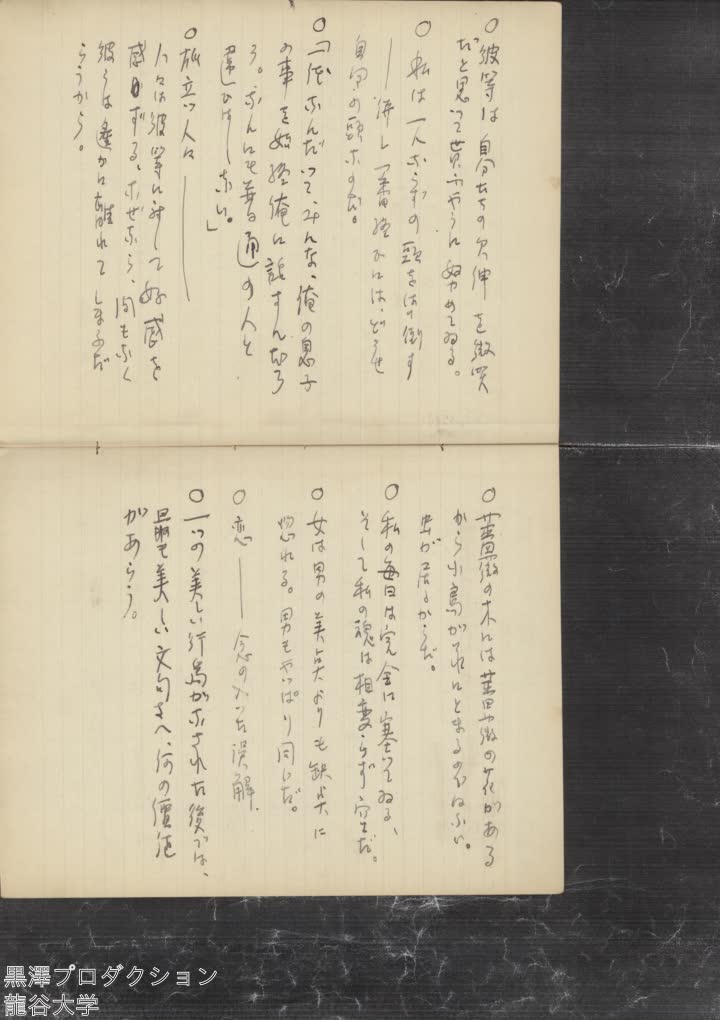 ○彼等は自分たちの欠伸を微笑
だと思って貰ふやうに努めてゐる。
○私は一人ならずの頭をはり倒す
―併し一番終ひには、どうせ
自分の頭なのだ。
○「一体なんだってみんな、俺の息子
の事を始終俺に話すんだら
う。なんにも普通の人と
違ひはしない。」
○旅立つ人に―
人々は彼等に対して好感を
感ずる、なぜなら、間もなく
彼らは遙かに離れてしまふだ
らうから。
○薔薇の木には薔薇の花がある
から小鳥がそれにとまるのではない。
虫が居るからだ。
○私の毎日は完全に塞ってゐる、
そして私の魂は相変らず空だ。
○女は男の美点よりも缺点に
惚れる。男もやっぱり同じだ。
○恋―念の入った誤解.
○一つの美しい行為がなされた後では、
最も美しい文句さへ、何の價値
があらう。
黒澤プロダクション
龍谷大学